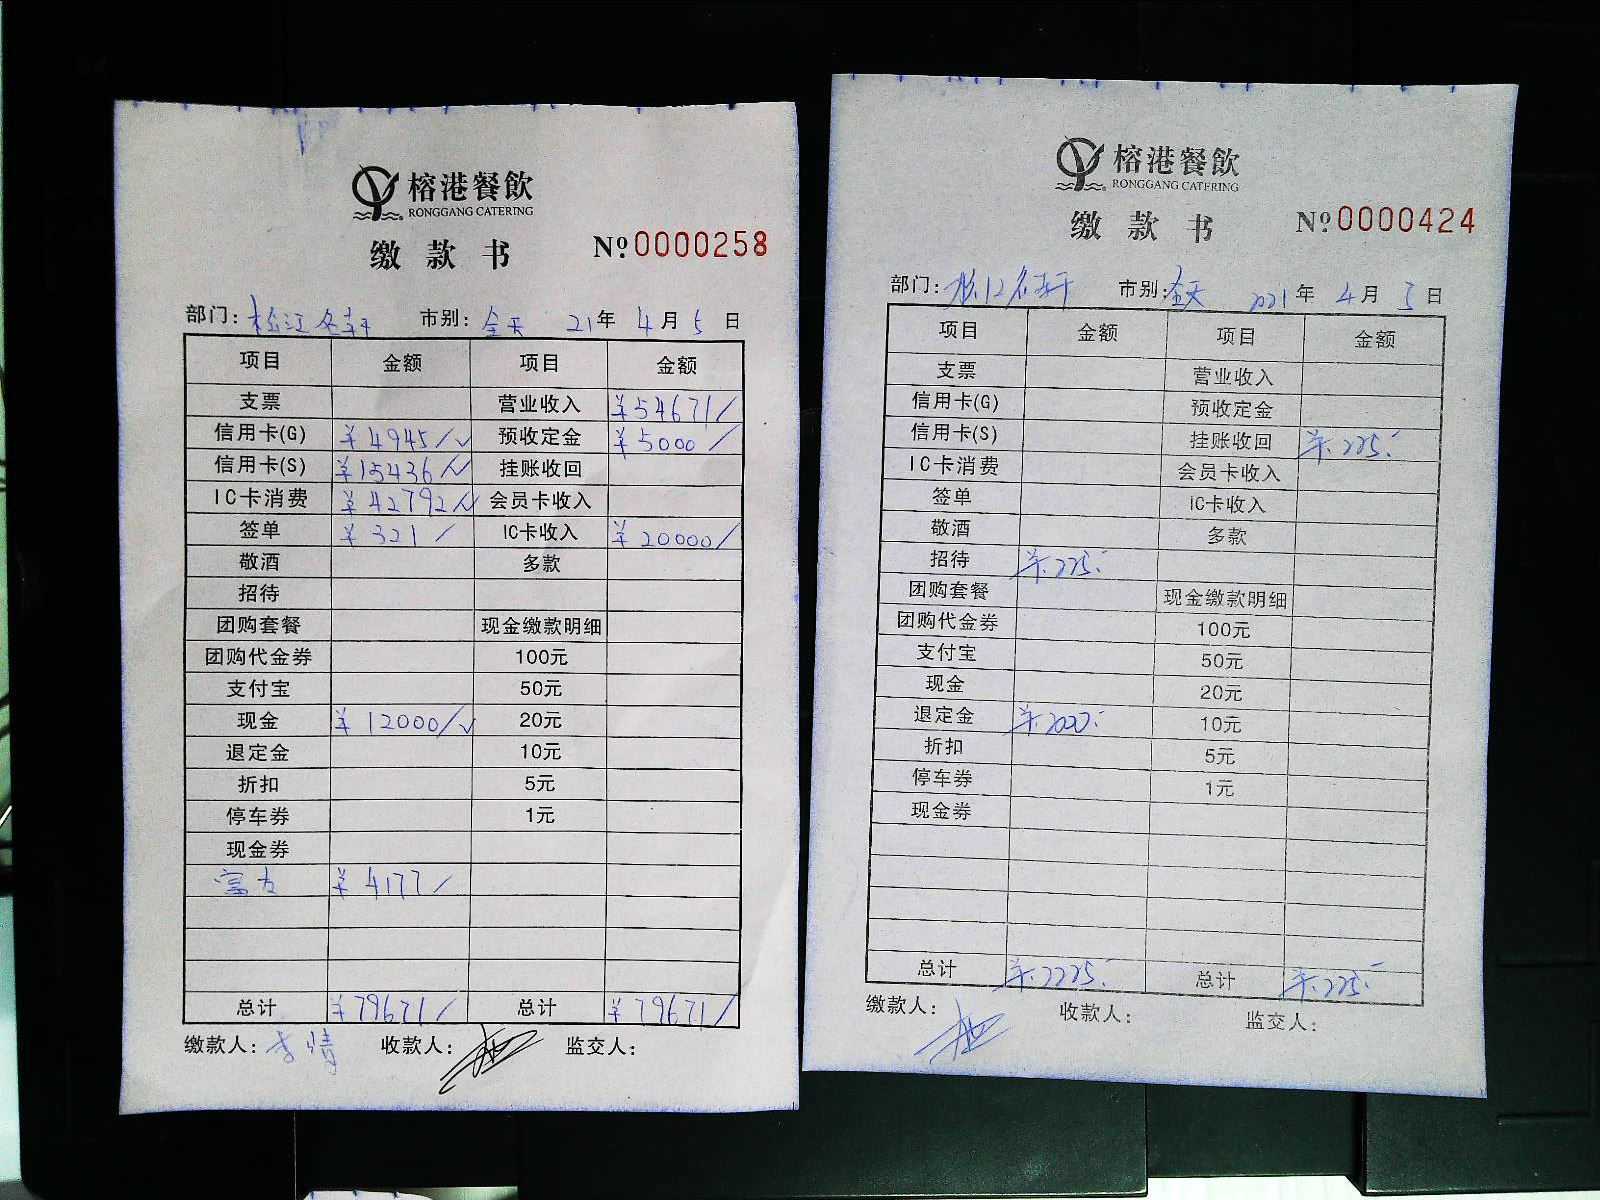 榕港餐飲
RONGGANG CATERING
缴款书 №0000258
部门：松江名轩 市别：全天 21年4月5日
项目 金额 项目 金额
支票 营业收入 ¥54671/
信用卡(G) ¥4945/√ 预收定金 ¥5000/
信用卡(S) ¥15436/√ 挂账收回
IC卡消费 ¥42792/√ 会员卡收入
签单 ¥321/ IC卡收入 ¥20000/
敬酒 多款
招待
团购套餐 现金缴款明细
团购代金券 100元
支付宝 50元
现金 ¥12000/√ 20元
退定金 10元
折扣 5元
停车券 1元
现金券
¥4177/
总计 ¥79671/ 总计 ¥79671/
缴款人：李晴 收款人： 监交人：
榕港餐飲
RONGGANG CATERING
缴款书 №0000424
部门：松江名轩 市别：全天 2021年4月5日
项目 金额 项目 金额
支票 营业收入
信用卡(G) 预收定金
信用卡(S) 挂账收回 ¥:225.-
IC卡消费 会员卡收入
签单 IC卡收入
敬酒 多款
招待 ¥:225.-
团购套餐 现金缴款明细
团购代金券 100元
支付宝 50元
现金 20元
退定金 ¥:2000.- 10元
折扣 5元
停车券 1元
现金券
总计 ¥:2225.- 总计 ¥:225.-
缴款人： 收款人： 监交人：